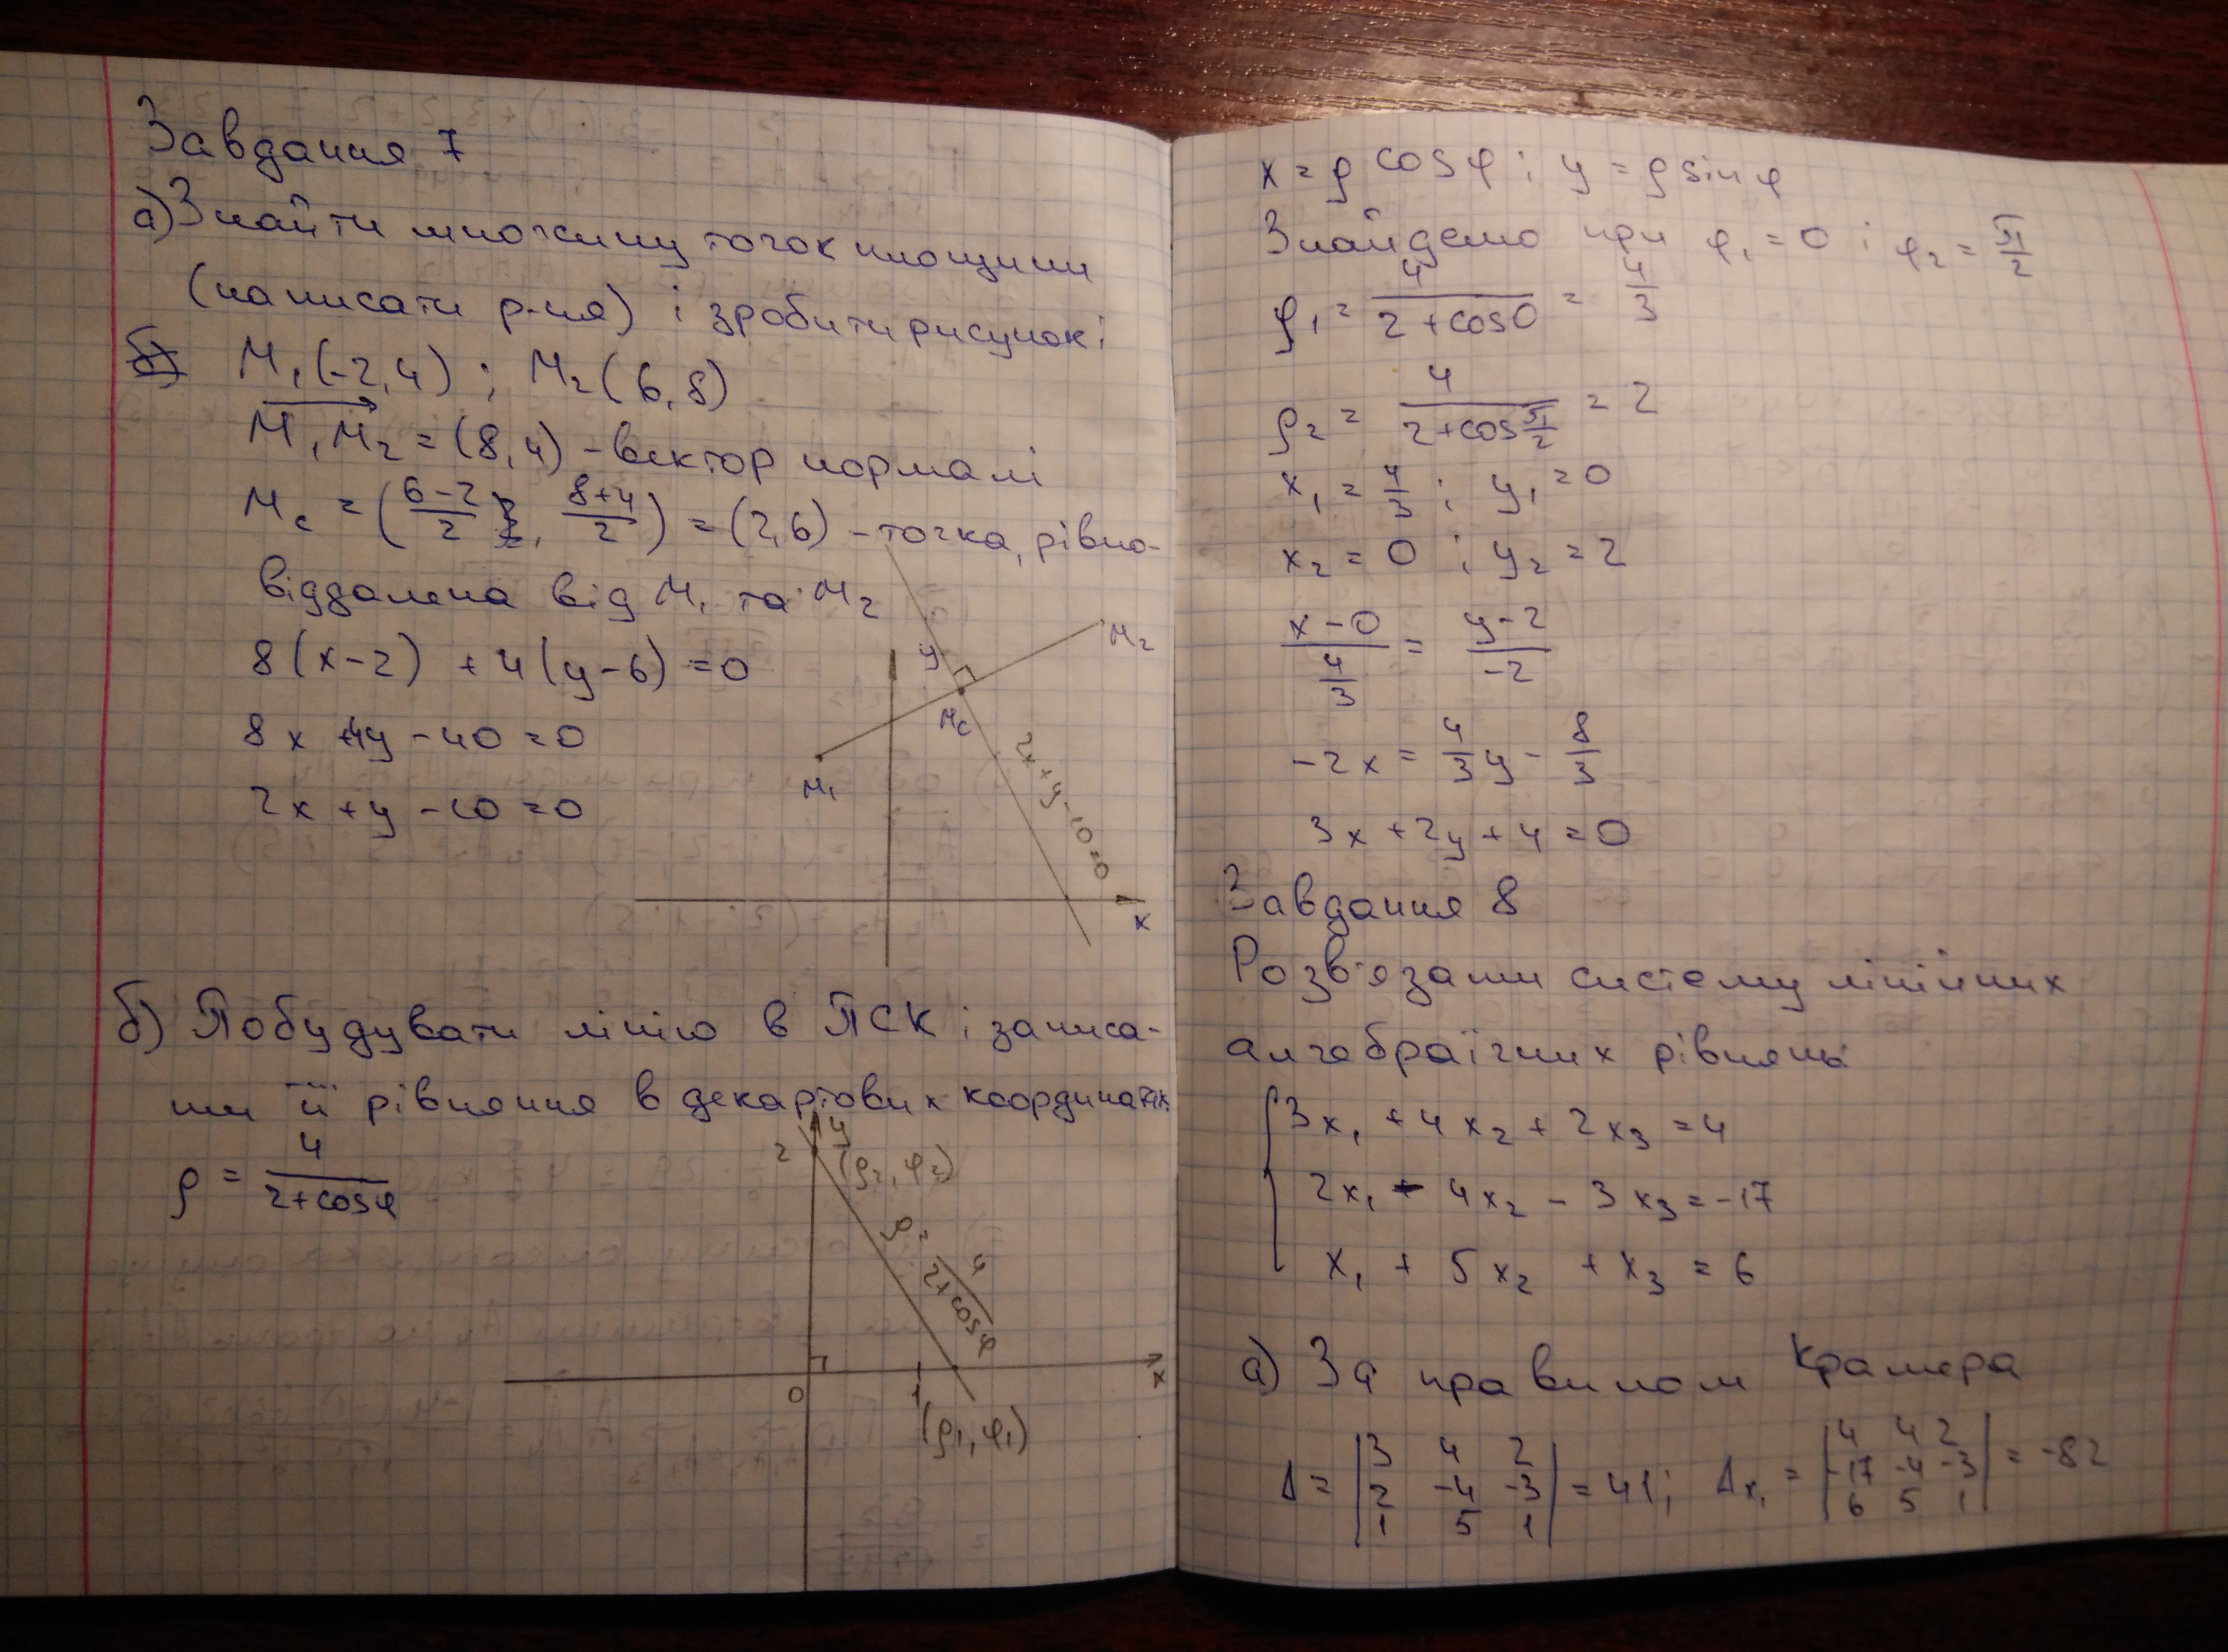 Завдання 7
а) Знайти множину точок площини
(написати р-ня) і зробити рисунок:
M₁(-2,4) ; M₂(6,8)
M₁M₂ = (8,4) - вектор нормалі
Mc = (6-2/2, 8+4/2) = (2,6) - точка, рівно-
віддалена від M₁ та M₂
8(x-2) + 4(y-6) = 0
8x + 4y - 40 = 0
2x + y - 10 = 0
y
M₂
Mc
M₁
2x + y - 10 = 0
x
б) Побудувати лінію в ПСК і записа-
ти її рівняння в декартових координатах
ρ = 4/2+cosφ
y
2
(ρ₂, φ₂)
ρ = 4/2+cosφ
0
1
x
(ρ₁, φ₁)
x = ρ cosφ ; y = ρ sinφ
Знайдемо при φ₁ = 0 ; φ₂ = π/2
ρ₁ = 4/2+cos0 = 4/3
ρ₂ = 4/2+cos π/2 = 2
x₁ = 4/3 ; y₁ = 0
x₂ = 0 ; y₂ = 2
x-0 / 4/3 = y-2 / -2
-2x = 4/3 y - 8/3
3x + 2y + 4 = 0
Завдання 8
Розв'язати систему лінійних
алгебраїчних рівнянь:
3x₁ + 4x₂ + 2x₃ = 4
2x₁ - 4x₂ - 3x₃ = -17
x₁ + 5x₂ + x₃ = 6
а) За правилом Крамера
Δ = |3 4 2; 2 -4 -3; 1 5 1| = 41; Δx₁ = |4 4 2; -17 -4 -3; 6 5 1| = -82